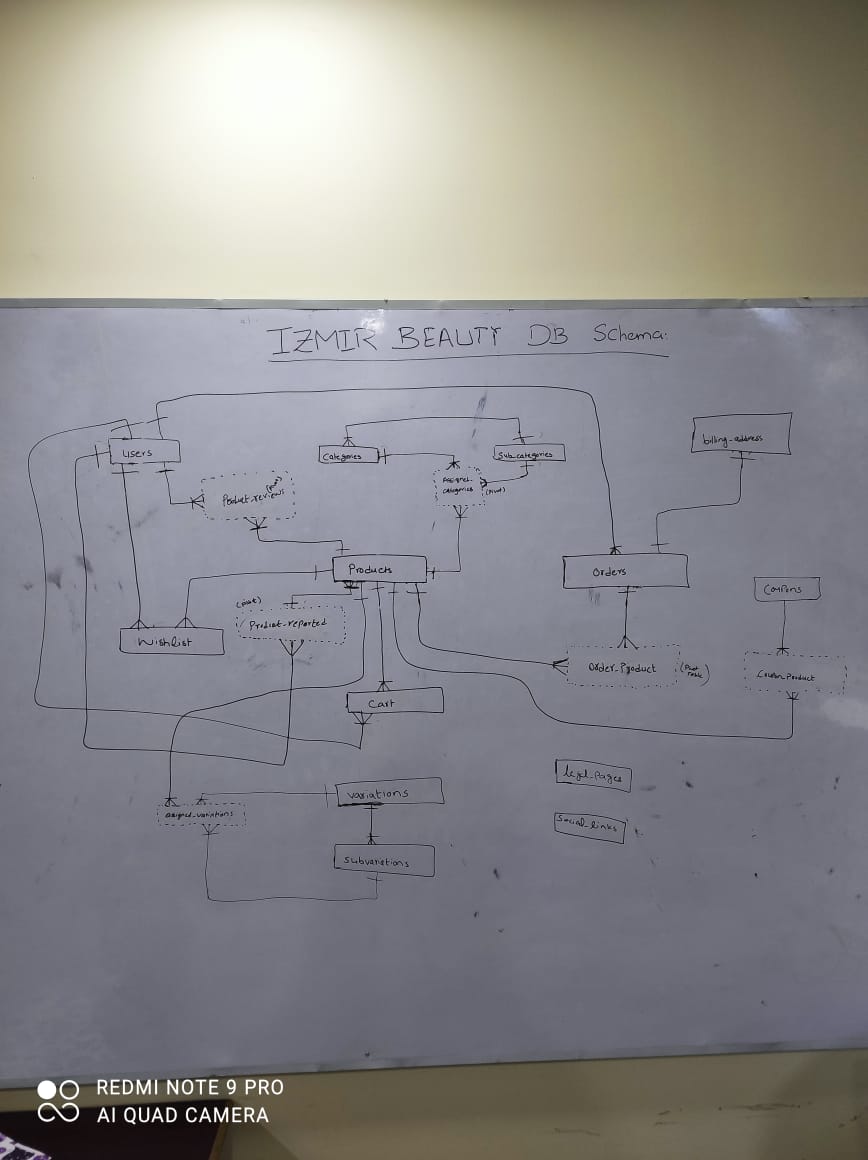 IZMIR BEAUTY DB Schema:
users
Categories
Sub_categories
billing_address
Product_reviews
(pivot)
Assigned_
categories
(pivot)
Products
Orders
Coupons
Wishlist
(pivot)
Product_reported
Order_Product
(Pivot
Table)
Coupon_Product
Cart
legal_pages
variations
assigned_variations
Social_links
Subvariations
REDMI NOTE 9 PRO
AI QUAD CAMERA